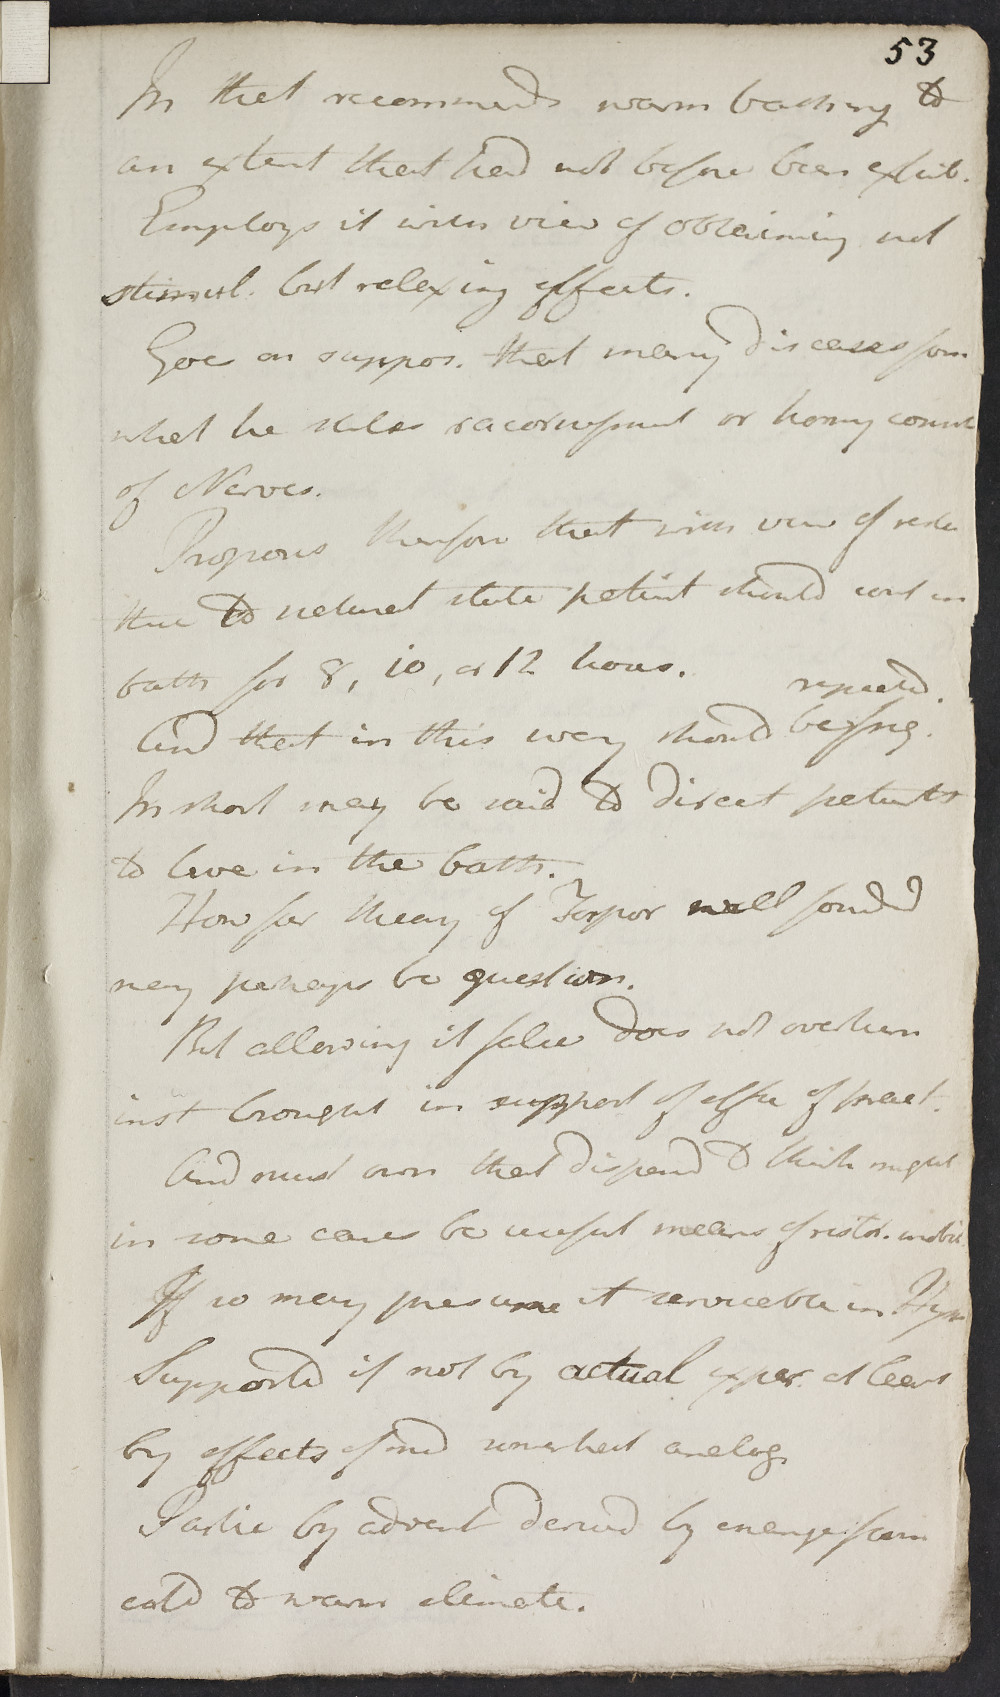 53
In that recommends warm bathing to
an extent that had not before been exhib.
Employs it with view of obtaining not
stimul. but relaxing effects.
Goes on suppos. that many diseases from
what he stiles racornissment or horny
of Nerves.
Proposes therefore that with view of
to natural state patient should cont in
bath for 8, 10, or 12 hours.
repeated.
And that in this way should
In short may be said to direct patients
to live in the bath.
How far theory of Torpor well found
may perhaps be question.
But allowing it false does not overturn
inst brought in support of pract.
And must own that dispend to think might
in some cases be useful means of restor. mobil
If so may presume it serviceable in Hyst
Supported if not by actual exper. at least
by effects of somewhat analog.
Partic by advant derived by change from
cold to warm climate.